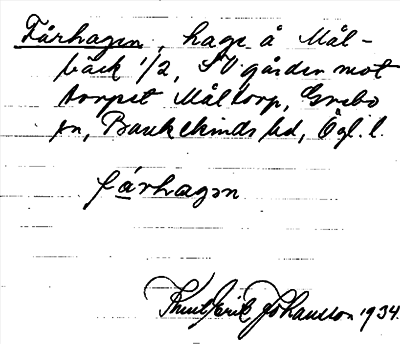 Fårhagen, hage å Mål-
bäck 1/2, SV gården mot
torpet Måltorp, Grebo
sn, Bankekinds hd, Ögl. l.
fårhagən
Knut Erik Johansson 1934.